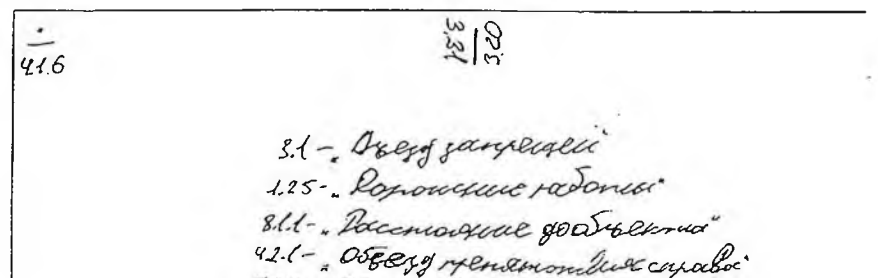 3.20
3.31
4.1.6
3.1 - „Въезд запрещен"
1.25 - „Дорожные работы"
8.1.1 - „Расстояние до объекта"
4.2.1 - „Объезд препятствия справа"